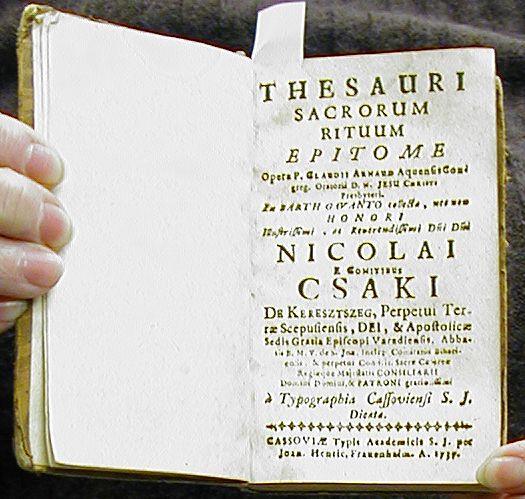 THESAURI
SACRORUM
RITUUM
EPITOME
Opera P. CLAUDII ARNAUD Aquensis Con-
greg. Oratorii D. N. JESU CHRISTI
Presbyteri.
Ex BARTH GAVANTO collecta, nec non
HONORI
Illustrissimi, ac Reverendissimi Dñi Dñi
NICOLAI
E COMITIBUS
CSAKI
DE KERESZTSZEG, Perpetui Ter-
ræ Scepusiensis, DEI, & Apostolicæ
Sedis Gratia Episcopi Varadiensis, Abba-
tis B. M. V. de
& perpetui Sacræ Cæsareæ
Regiæque Majestatis CONSILIARII
Domini Domini, & PATRONI gratiosissimi
à Typographia Cassoviensi S. J.
Dicata.
CASSOVIÆ Typis Academicis S. J. per
Joan. Henric. Frauenheim. A.